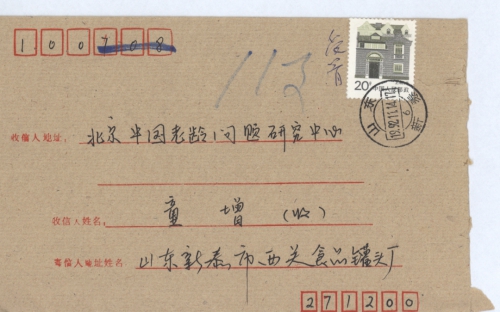 100708
113
20分 中国人民邮政
山东 新泰
收信人地址: 北京中国老龄问题研究中心
收信人姓名: 童增(收)
寄信人地址姓名: 山东新泰市西关食品罐头厂
271200